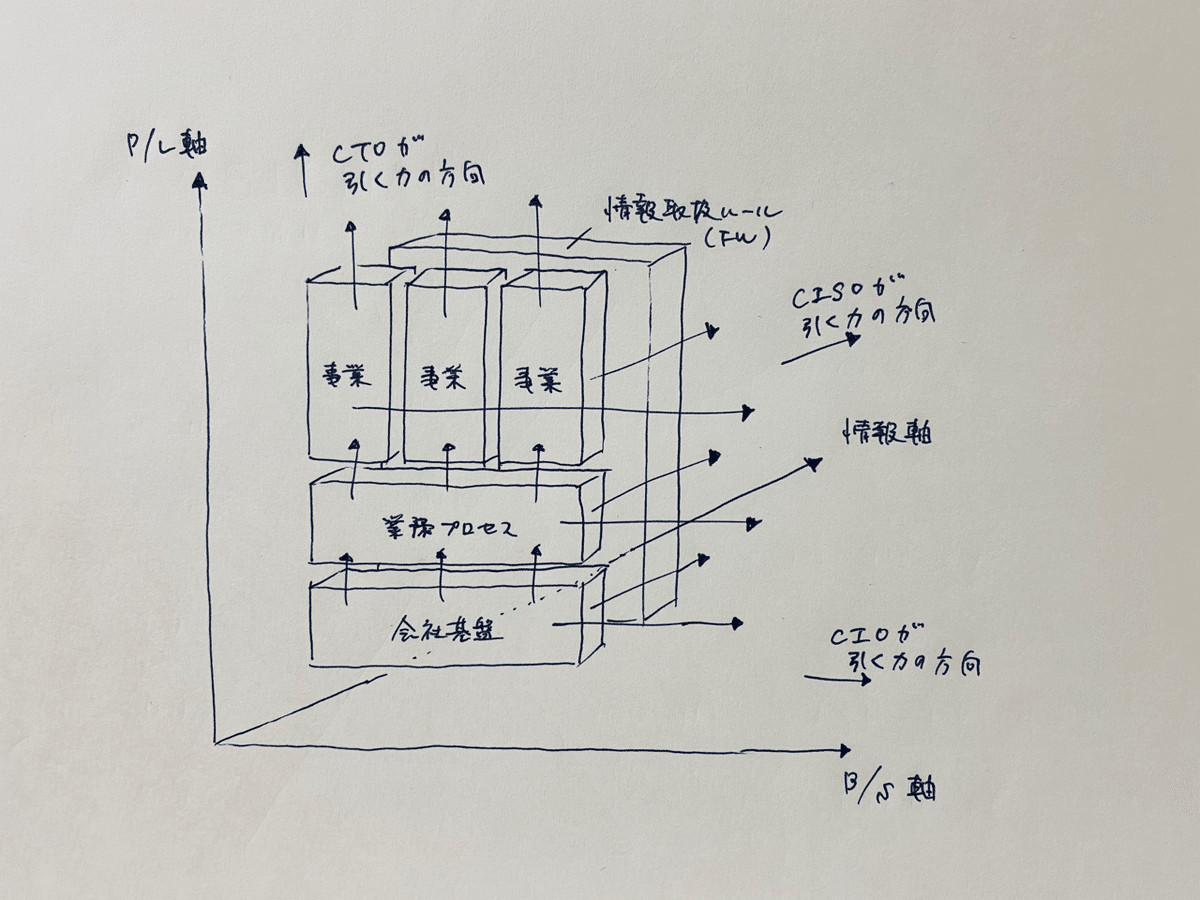 P/L軸
CTOが
引く力の方向
情報取扱ルール
(FW)
CISOが
引く力の方向
事業
事業
事業
情報軸
業務プロセス
会社基盤
CIOが
引く力の方向
B/S軸